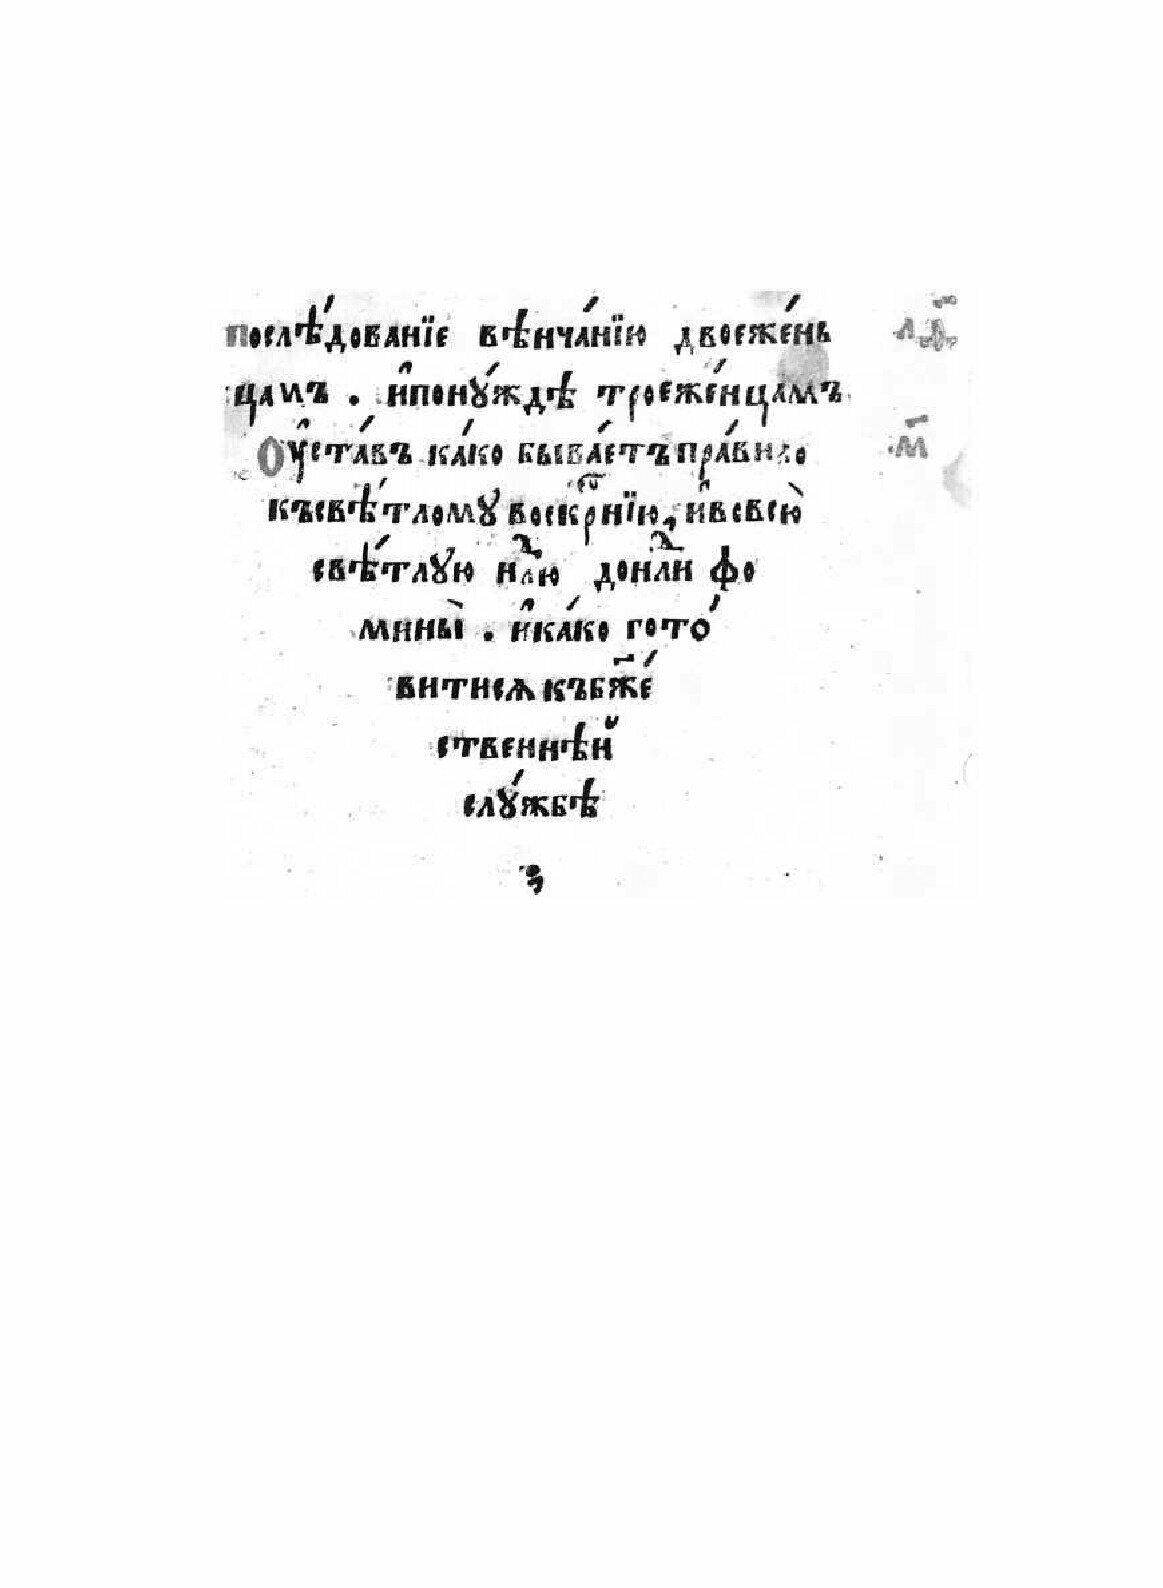 послѣ́дованїе вѣнча́нїю двоеже́нь
цамъ . и҆понꙋ́ждѣ троеже́нцамъ
Оу҆ста́въ ка́ко быва́етъ пра́вило м҃
късвѣ́тломꙋ воскрⷭ҇нїю, и҆вовсю̀
свѣ́тлꙋю нлⷣю донлⷣи фо
мины̀ . и҆ка́ко гото́
витисѧ къбж҃е́
ственнѣй
слꙋ́жбѣ